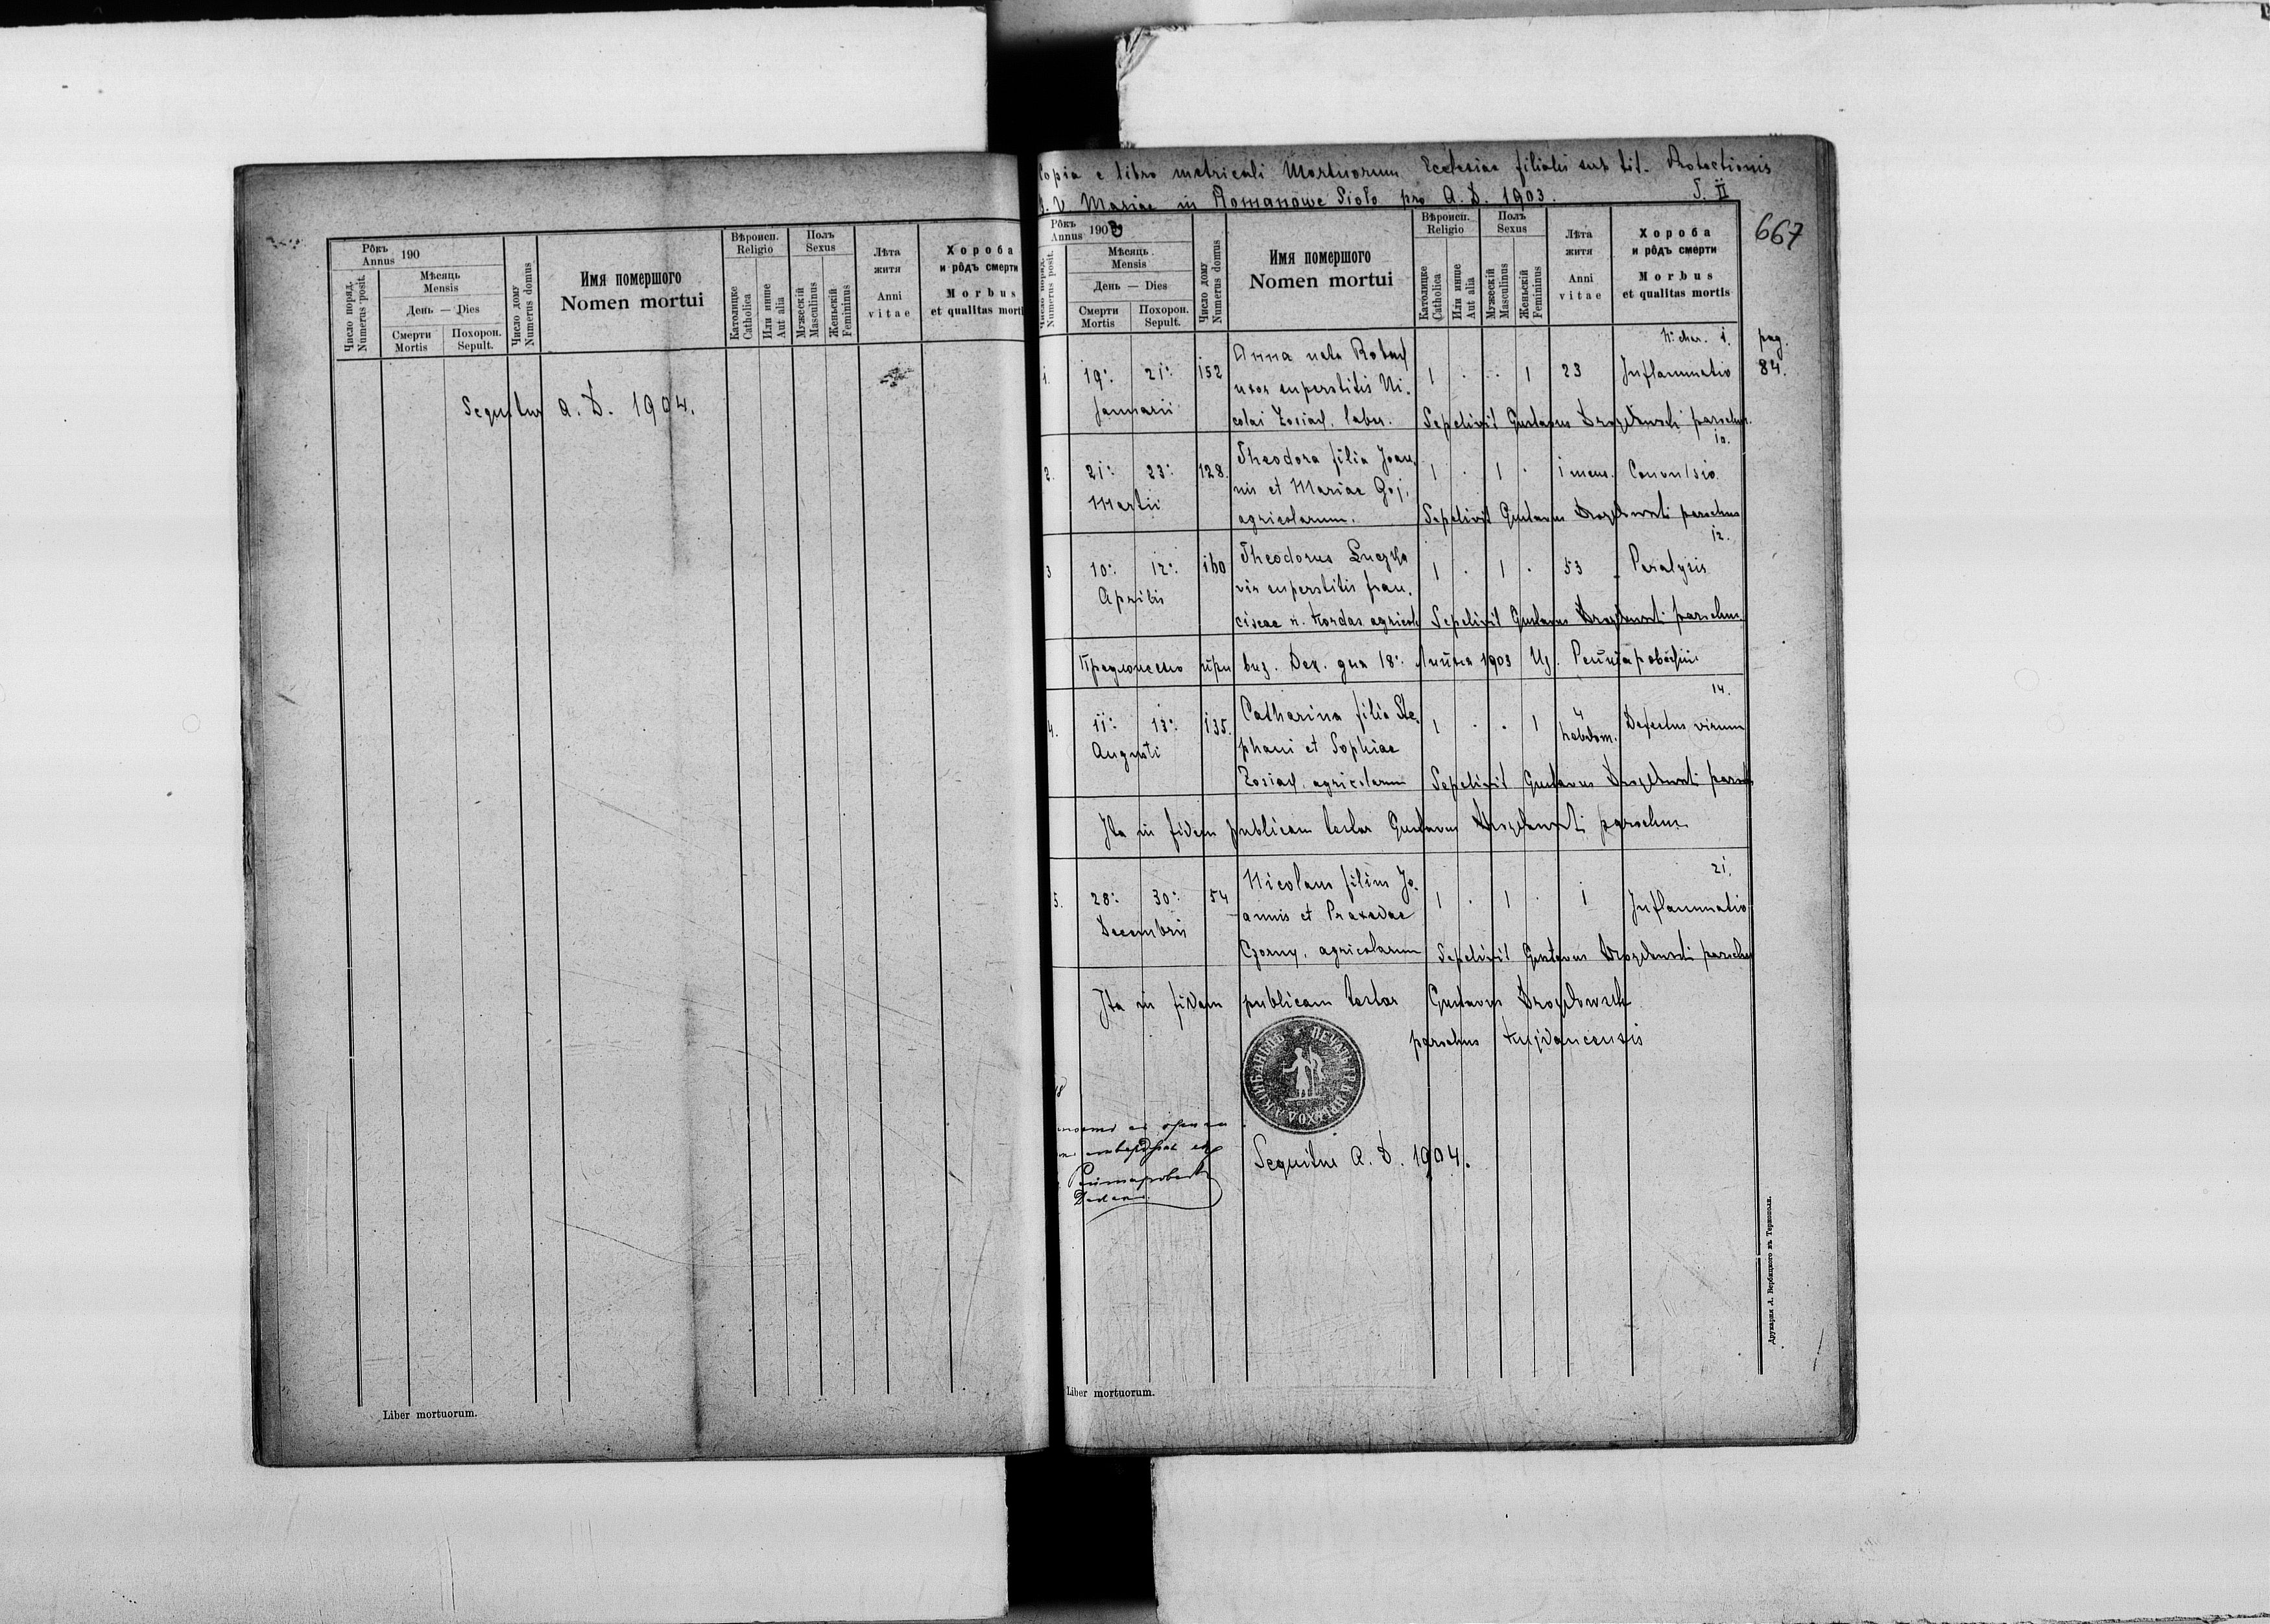 Рôкъ
Annus 190
Число поряд.
Numerus posit.
Мѣсяць
Mensis
День — Dies
Смерти
Mortis
Похорон.
Sepult.
Число дому
Numerus domus
Имя помершого
Nomen mortui
Вѣроисп.
Religio
Католицке
Catholica
Или инше
Aut alia
Полъ
Sexus
Мужескій
Masculinus
Женьскій
Femininus
Лѣта
житя
Anni
vitae
Хороба
и рôдъ смерти
Morbus
et qualitas morti
Sequitur A. D. 1904.
Liber mortuorum.
Copia e libro metricali Mortuorum Ecclesiae filialis sub tit. Protectionis
B. V Mariae in Romanowe Sioło pro A. D. 1903. T. II
667
Рôкъ
Annus 1903
Число поряд.
Numerus posit.
Мѣсяць
Mensis
День — Dies
Смерти
Mortis
Похорон.
Sepult.
Число дому
Numerus domus
Имя помершого
Nomen mortui
Вѣроисп.
Religio
Католицке
Catholica
Или инше
Aut alia
Полъ
Sexus
Мужескій
Masculinus
Женьскій
Femininus
Лѣта
житя
Anni
vitae
Хороба
и рôдъ смерти
Morbus
et qualitas mortis
pag.
84.
1. 19. 21. 152 Anna nata
uxor superstitis Ni-
colai labor.
Januarii
1 . . 1 23 Inflammatio
Sepelivit Gustavus Drozdowski parochus.
10.
2. 21. 23. 128. Theodora filia Joan-
nis et Mariae Goj,
agricolarum.
Martii
1 . 1 . 1 mens. Convulsio
Sepelivit Gustavus Drozdowski parochus
12.
3 10. 12. 160 Theodorus Luczko
vir superstitis Fran-
ciscae n. Kordas agricola
Aprilis
1 . 1 . 53 Paralysis
Sepelivit Gustavus Drozdowski parochus
Предложено при виз. Дек. дня 18. Липня 1903
14.
4. 11. 13. 135. Catharina filia Ste-
phani et Sophiae
agricolarum
Augusti
1 . . 1 4 hebdom. Defectus virium
Sepelivit Gustavus Drozdowski paroch
Ita in fidem publicam testor Gustavus Drozdowski parochus
21.
5. 28. 30. 54 Nicolaus filius Jo-
annis et Praxedae
Czorny, agricolarum
Decembris
1 . 1 . 1 Inflammatio
Sepelivit Gustavus Drozdowski parochus
Ita in fidem publicam testor Gustavus Drozdowski
parochus
Sequitur A. D. 1904.
Liber mortuorum.
Друкарня А. Вербицкого въ Тернополи.